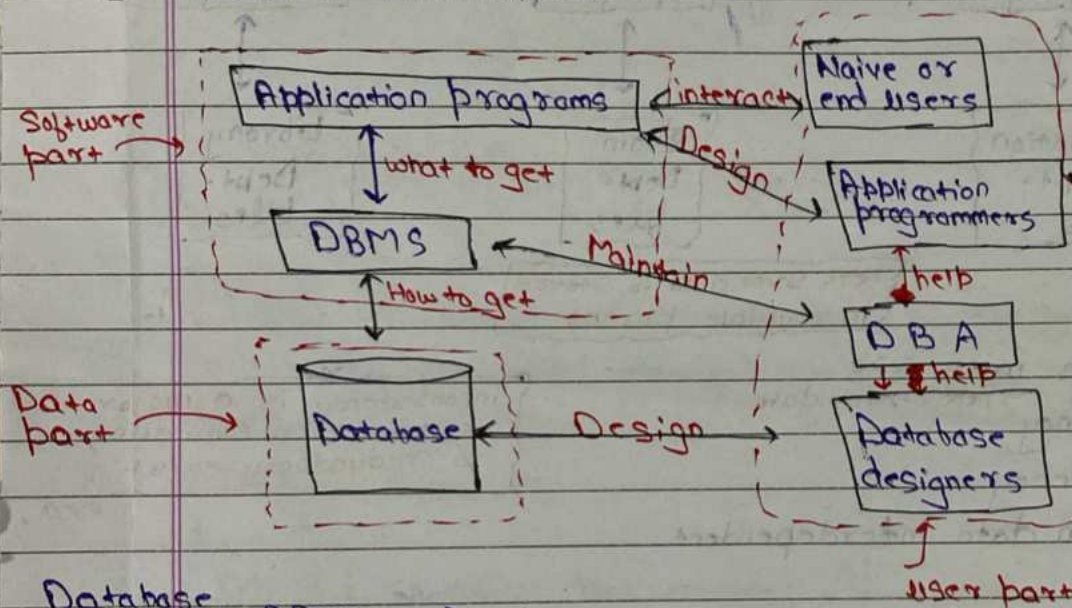 Application programs
interact
Naive or
end users
Software
part
what to get
Design
Application
programmers
DBMS
Maintain
help
How to get
D B A
help
Data
part
Database
Design
Database
designers
user part
Database